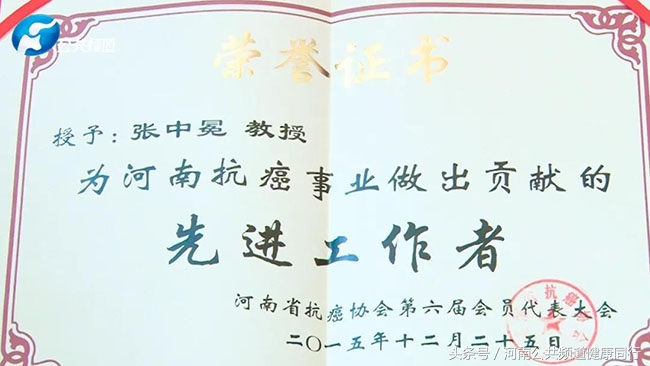 公共频道
荣誉证书
授予：张中冕 教授
为河南抗癌事业做出贡献的
先进工作者
河南省抗癌协会第六届会员代表大会
二〇一五年十二月二十五日
头条号／河南公共频道健康同行